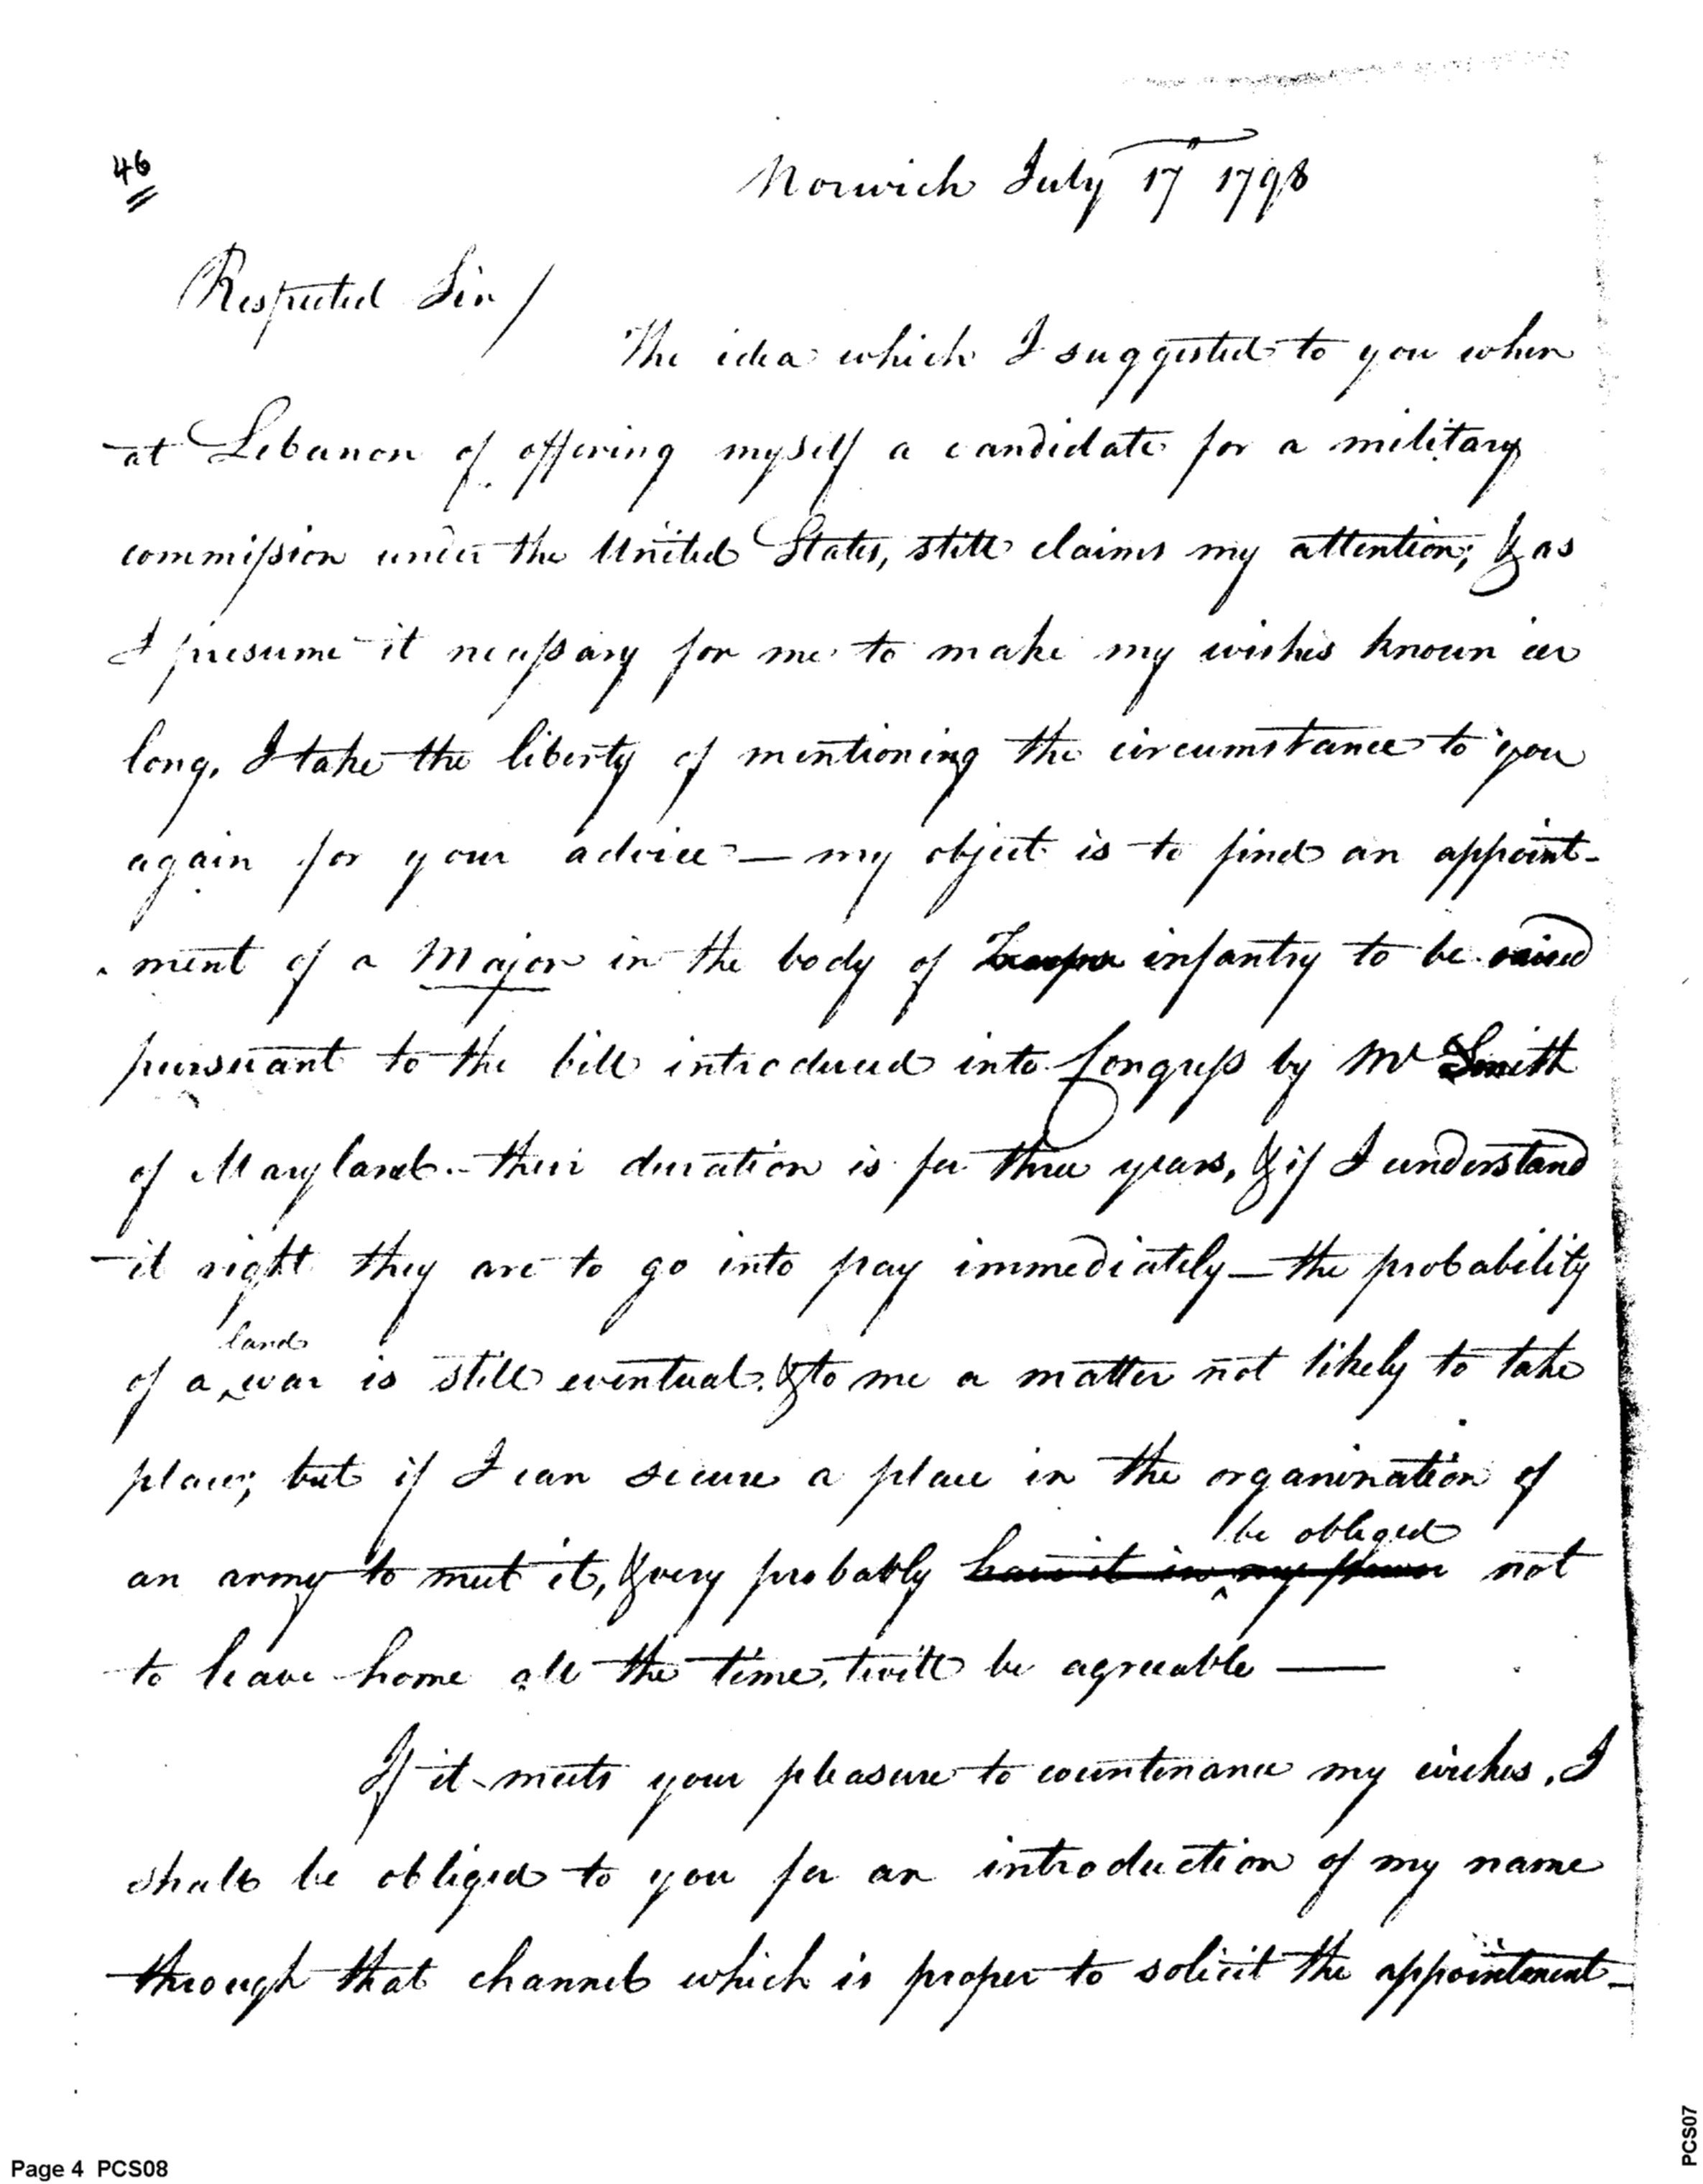 46
Norwich July 17th 1798
Respected Sir/
The idea which I suggested to you when
at Lebanon of offering myself a candidate for a military
commission under the United States, still claims my attention; & as
I presume it necessary for me to make my wishes known eer
long, I take the liberty of mentioning the circumstance to you
again for your advice — my object is to find an appoint-
ment of a Major in the body of Troops infantry to be raised
pursuant to the bill introduced into Congress by Mr Smith
of Maryland - their duration is for three years, & if I understand
it right they are to go into pay immediately — the probability
land
of a war is still eventual, & to me a matter not likely to take
place; but if I can secure a place in the organization of
be obliged
an army to meet it, & very probably have it in my power not
to leave home all the time, twill be agreeable —
If it meets your pleasure to countenance my wishes, I
shall be obliged to you for an introduction of my name
through that channel which is proper to solicit the appointment -
Page 4 PCS08
PCS07